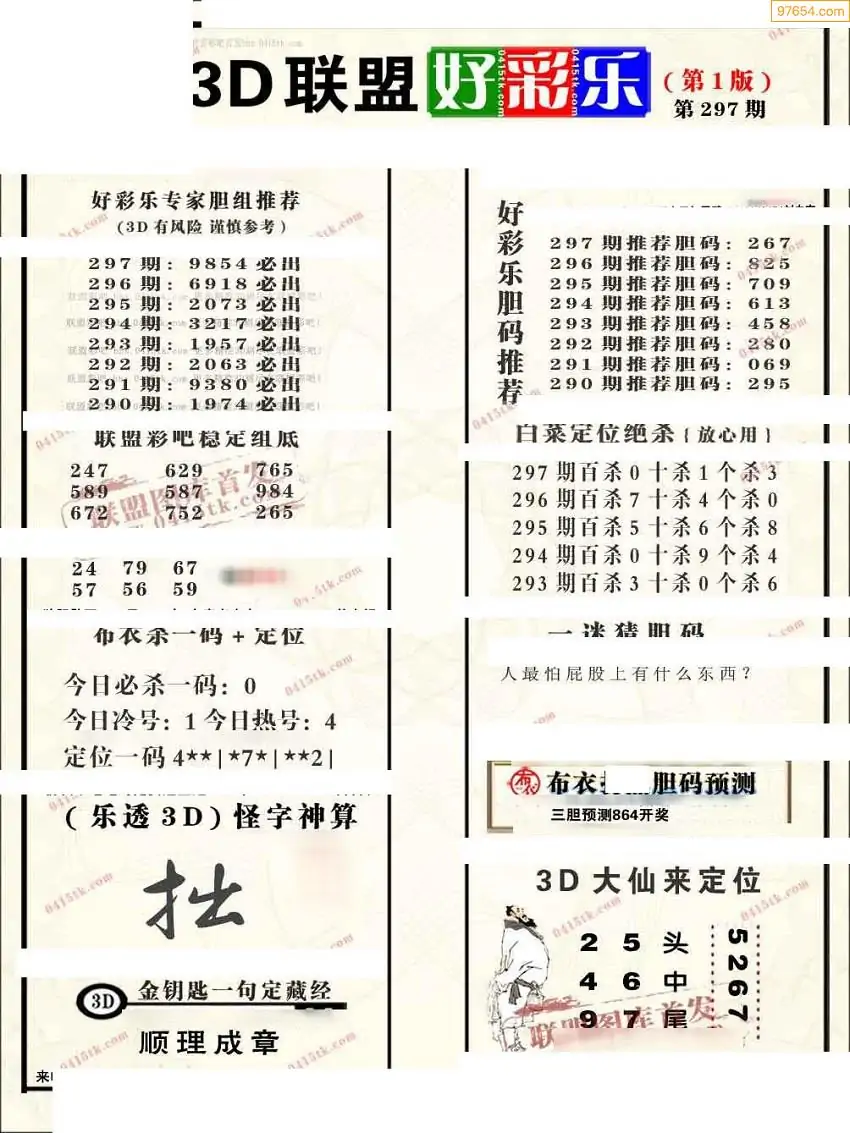 97654.com
3D联盟好彩乐
(第1版)
第297期
好彩乐专家胆组推荐
(3D有风险 谨慎参考)
297期: 9854必出
296期: 6918必出
295期: 2073必出
294期: 3217必出
293期: 1957必出
292期: 2063必出
291期: 9380必出
290期: 1974必出
联盟彩吧稳定组底
247 629 765
589 587 984
672 752 265
24 79 67
57 56 59
布衣杀一码+定位
今日必杀一码: 0
今日冷号: 1 今日热号: 4
定位一码4**|*7*|**2|
(乐透3D)怪字神算
拙
3D 金钥匙一句定藏经
顺理成章
好彩乐胆码推荐
297期推荐胆码: 267
296期推荐胆码: 825
295期推荐胆码: 709
294期推荐胆码: 613
293期推荐胆码: 458
292期推荐胆码: 280
291期推荐胆码: 069
290期推荐胆码: 295
白菜定位绝杀{放心用}
297期百杀0十杀1个杀3
296期百杀7十杀4个杀0
295期百杀5十杀6个杀8
294期百杀0十杀9个杀4
293期百杀3十杀0个杀6
一谜猜胆码
人最怕屁股上有什么东西?
布衣 胆码预测
三胆预测864开奖
3D大仙来定位
2 5 头
4 6 中
9 7 尾
5267
联盟图库首发
0415tk.com